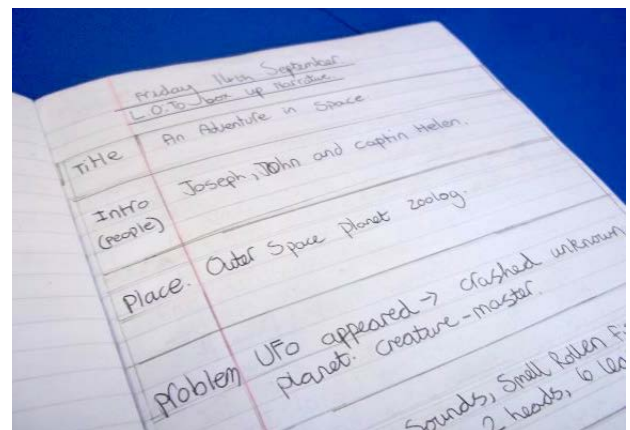 Friday 11th September
L.O: To box up Narrative
Title An Adventure in Space
Intro (people) Joseph, John and captin Helen.
Place. Outer Space planet zoolog.
problem UFO appeared → crashed unknown
planet. creature-master.
Sounds, Smell Rotten
2 heads, 6